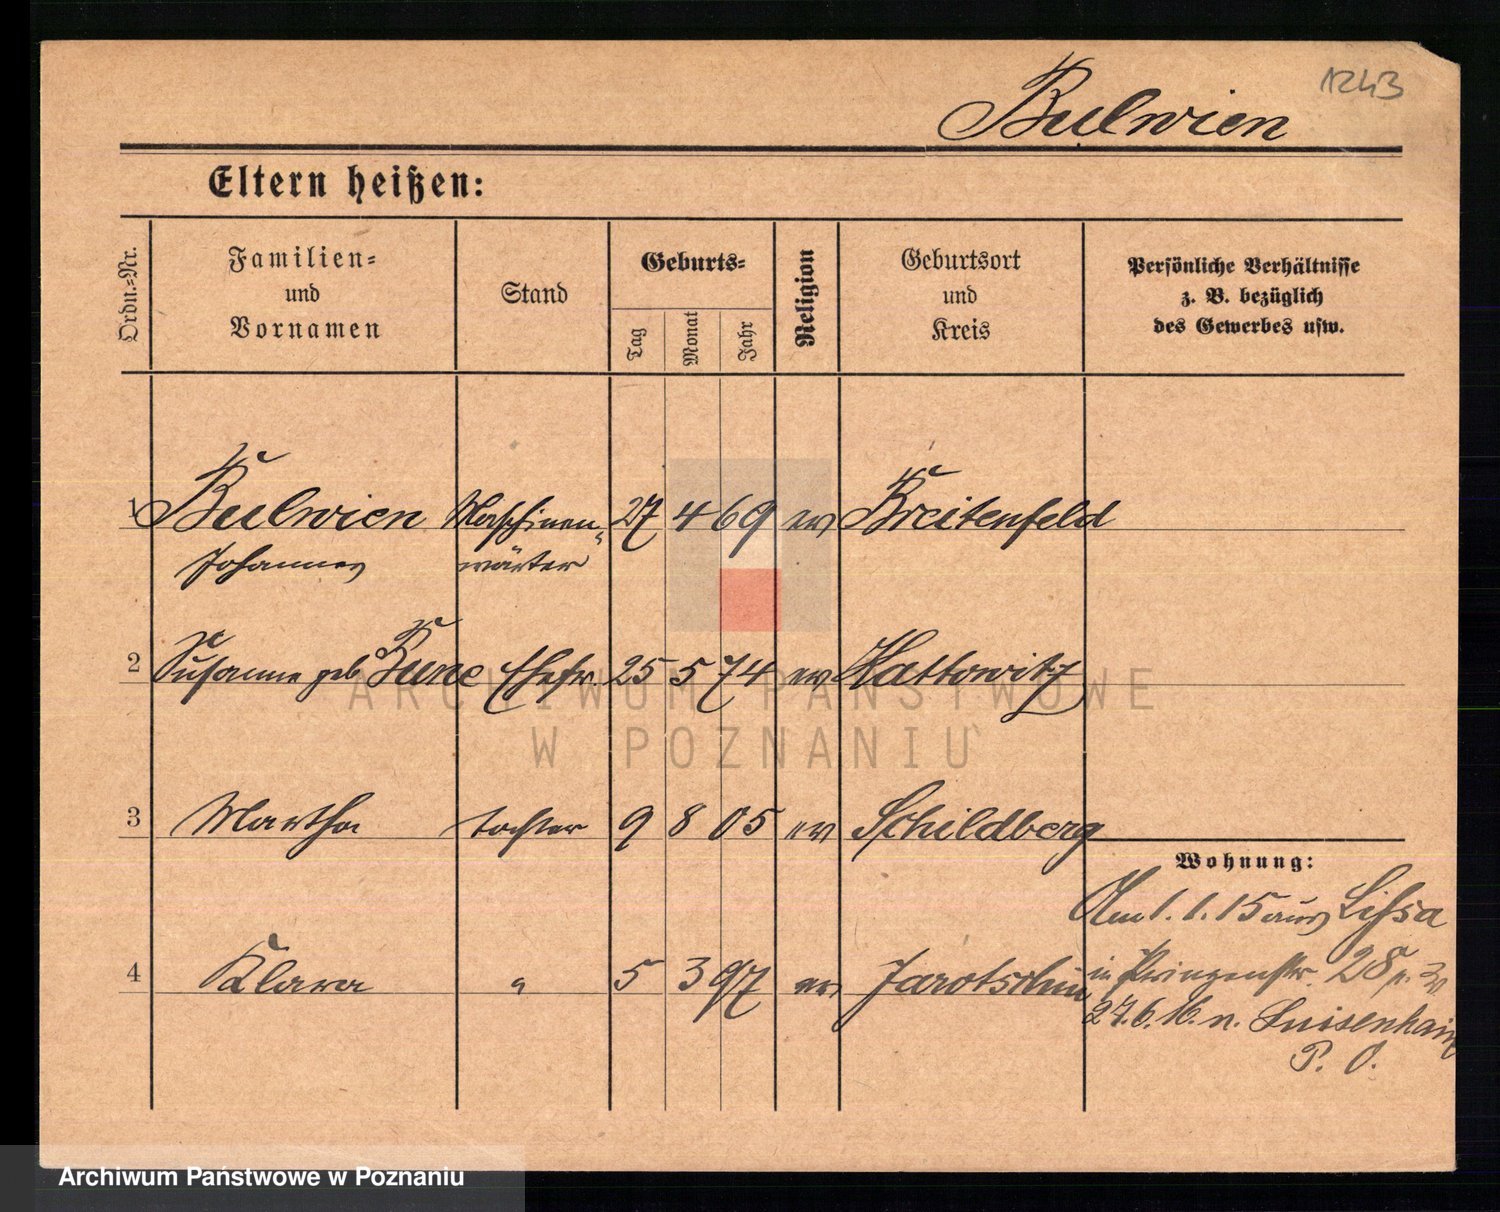 1243
Bulwien
Eltern heißen:
Ordn.-Nr.
Familien-
und
Vornamen
Stand
Geburts-
Tag
Monat
Jahr
Religion
Geburtsort
und
Kreis
Persönliche Verhältnisse
z. B. bezüglich
des Gewerbes usw.
1 Bulwien Maschinen- 27 4 69 ev Breitenfeld
Johannes wärter
2 Susanne geb Kunc Ehefr. 25 5 74 ev Kattowitz
3 Martha tochter 9 8 05 ev Schildberg
Wohnung:
Am 1.1.15 aus Lissa
4 Klara " 5 3 97 ev Jarotschin
in Prinzenstr. 28
27.6.16. n. Luisenhain
P. O.
ARCHIWUM PAŃSTWOWE
W POZNANIU
Archiwum Państwowe w Poznaniu